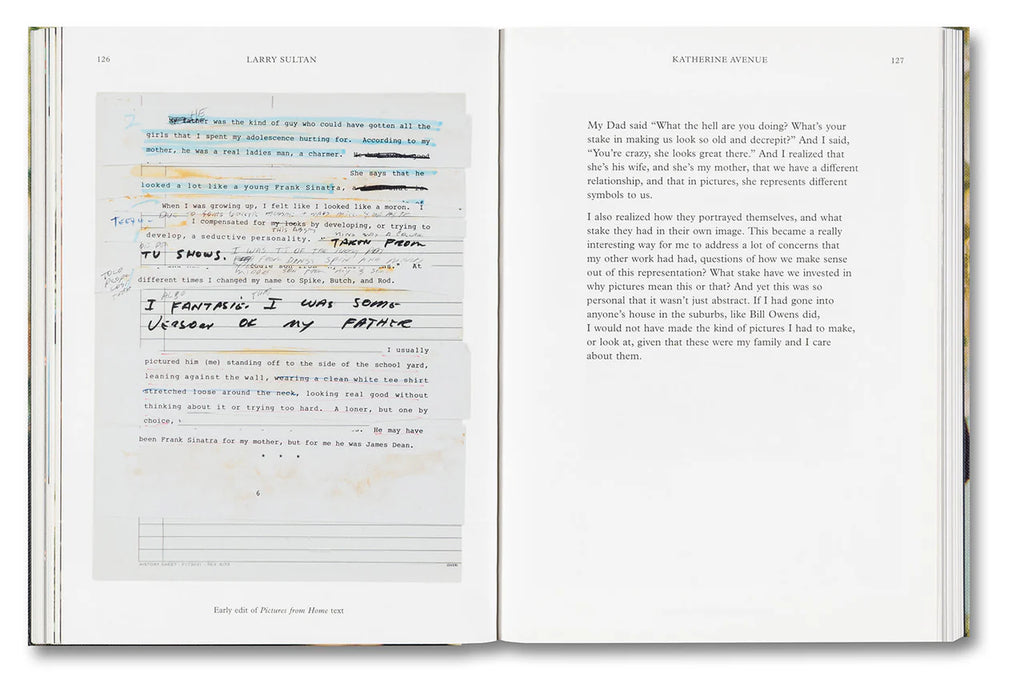 126
LARRY SULTAN
HE
father was the kind of guy who could have gotten all the
girls that I spent my adolescence hurting for. According to my
mother, he was a real ladies man, a charmer.
She says that he
looked a lot like a young Frank Sinatra, a
When I was growing up, I felt like I looked like a moron. I
I compensated for my looks by developing, or trying to
develop, a seductive personality. TAKEN FROM
TV SHOWS.
At
different times I changed my name to Spike, Butch, and Rod.
ALSO THAT
I FANTASIE. I WAS SOME
VERSION OF MY FATHER
I usually
pictured him (me) standing off to the side of the school yard,
leaning against the wall, wearing a clean white tee shirt
stretched loose around the neck, looking real good without
thinking about it or trying too hard. A loner, but one by
choice,
He may have
been Frank Sinatra for my mother, but for me he was James Dean.
* * *
6
Early edit of Pictures from Home text
KATHERINE AVENUE
127
My Dad said “What the hell are you doing? What’s your
stake in making us look so old and decrepit?” And I said,
“You’re crazy, she looks great there.” And I realized that
she’s his wife, and she’s my mother, that we have a different
relationship, and that in pictures, she represents different
symbols to us.
I also realized how they portrayed themselves, and what
stake they had in their own image. This became a really
interesting way for me to address a lot of concerns that
my other work had had, questions of how we make sense
out of this representation? What stake have we invested in
why pictures mean this or that? And yet this was so
personal that it wasn’t just abstract. If I had gone into
anyone’s house in the suburbs, like Bill Owens did,
I would not have made the kind of pictures I had to make,
or look at, given that these were my family and I care
about them.